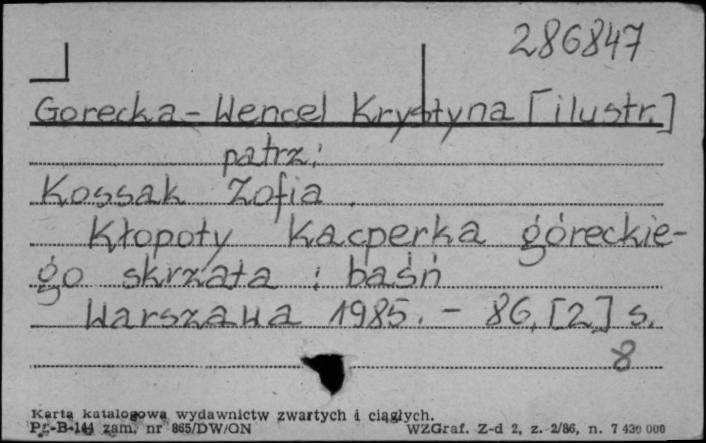 286847
Gorecka-Wencel Krystyna [ilustr.]
patrz:
Kossak Zofia.
Kłopoty Kacperka góreckie-
go skrzata : baśń
Warszawa 1985. - 86, [2] s.
8
Karta katalogowa wydawnictw zwartych i ciągłych.
Pr-B-144 zam. nr 865/DW/ON WZGraf. Z-d 2, z. 2/86, n. 7 430 000